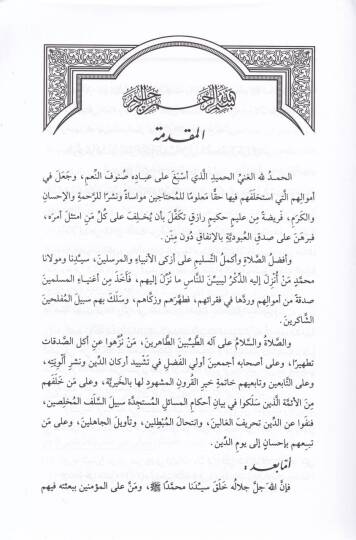 بسم الله الرحمن الرحيم
المقدمة
الحمـدُ لله الغنيِّ الحميدِ الَّذي أسْبَغَ على عبـادِه صُنوفَ النِّعم، وجَعَلَ في
أموالِهم الَّتي استخلَفَهم فيها حقًّا معلومًا للمُحتاجين مواساةً ونشرًا للرَّحمةِ والإحسانِ
والكَرَم، فريضةً مِن عليمٍ حكيمٍ رازقٍ تكفَّلَ بأن يُخلِفَ على كُلِّ مَن امتثلَ أمرَه،
فبرهَنَ على صدقِ العبوديَّةِ بالإنفاقِ دُون مِنَن.
وأفضلُ الصَّلاةِ وأكملُ التَّسليم على أزكى الأنبياءِ والمرسلين، سيِّدِنا ومولانا
محمَّدٍ مَنْ أُنزِلَ إليه الذِّكْرُ ليبيِّنَ للنَّاسِ ما نُزِّلَ إليهم، فأخَذَ مِن أغنياءِ المسلمينَ
صدقةً من أموالِهم وردَّها في فقرائهم، فطهَّرَهم وزكَّاهم، وسَلَكَ بهم سبيلَ المُفلحينَ
الشَّاكرين.
والصَّلاةُ والسَّلامُ على آله الطَّيِّبينَ الطَّاهرين، مَن نُزِّهوا عن أكلِ الصَّدقات
تطهيرًا، وعلى أصحابه أجمعينَ أولي الفَضلِ في تَشْييد أركان الدِّين ونشرِ ألْويَتِه،
وعلى التَّابعين وتابعيهم خاتمةِ خيرِ القُرونِ المشهودِ لها بالخَيريَّة، وعلى مَن خَلَفَهم
مِنَ الأئمَّة الَّذين سَلَكُوا في بيانِ أحكامِ المسائلِ المُستجدَّة سبيلَ السَّلَف المُخلِصين،
فنفَوا عن الدِّين تحريفَ الغالين، وانتحالَ المُبْطِلين، وتأويلَ الجاهلين، وعلى مَن
تبِعهم بإحسانٍ إلى يومِ الدِّين.
أمّا بعد:
فإنَّ اللهَ جلَّ جلالُه خَلَقَ سيِّدَنا محمَّدًا ﷺ، ومَنَّ على المؤمنين ببعثته فيهم